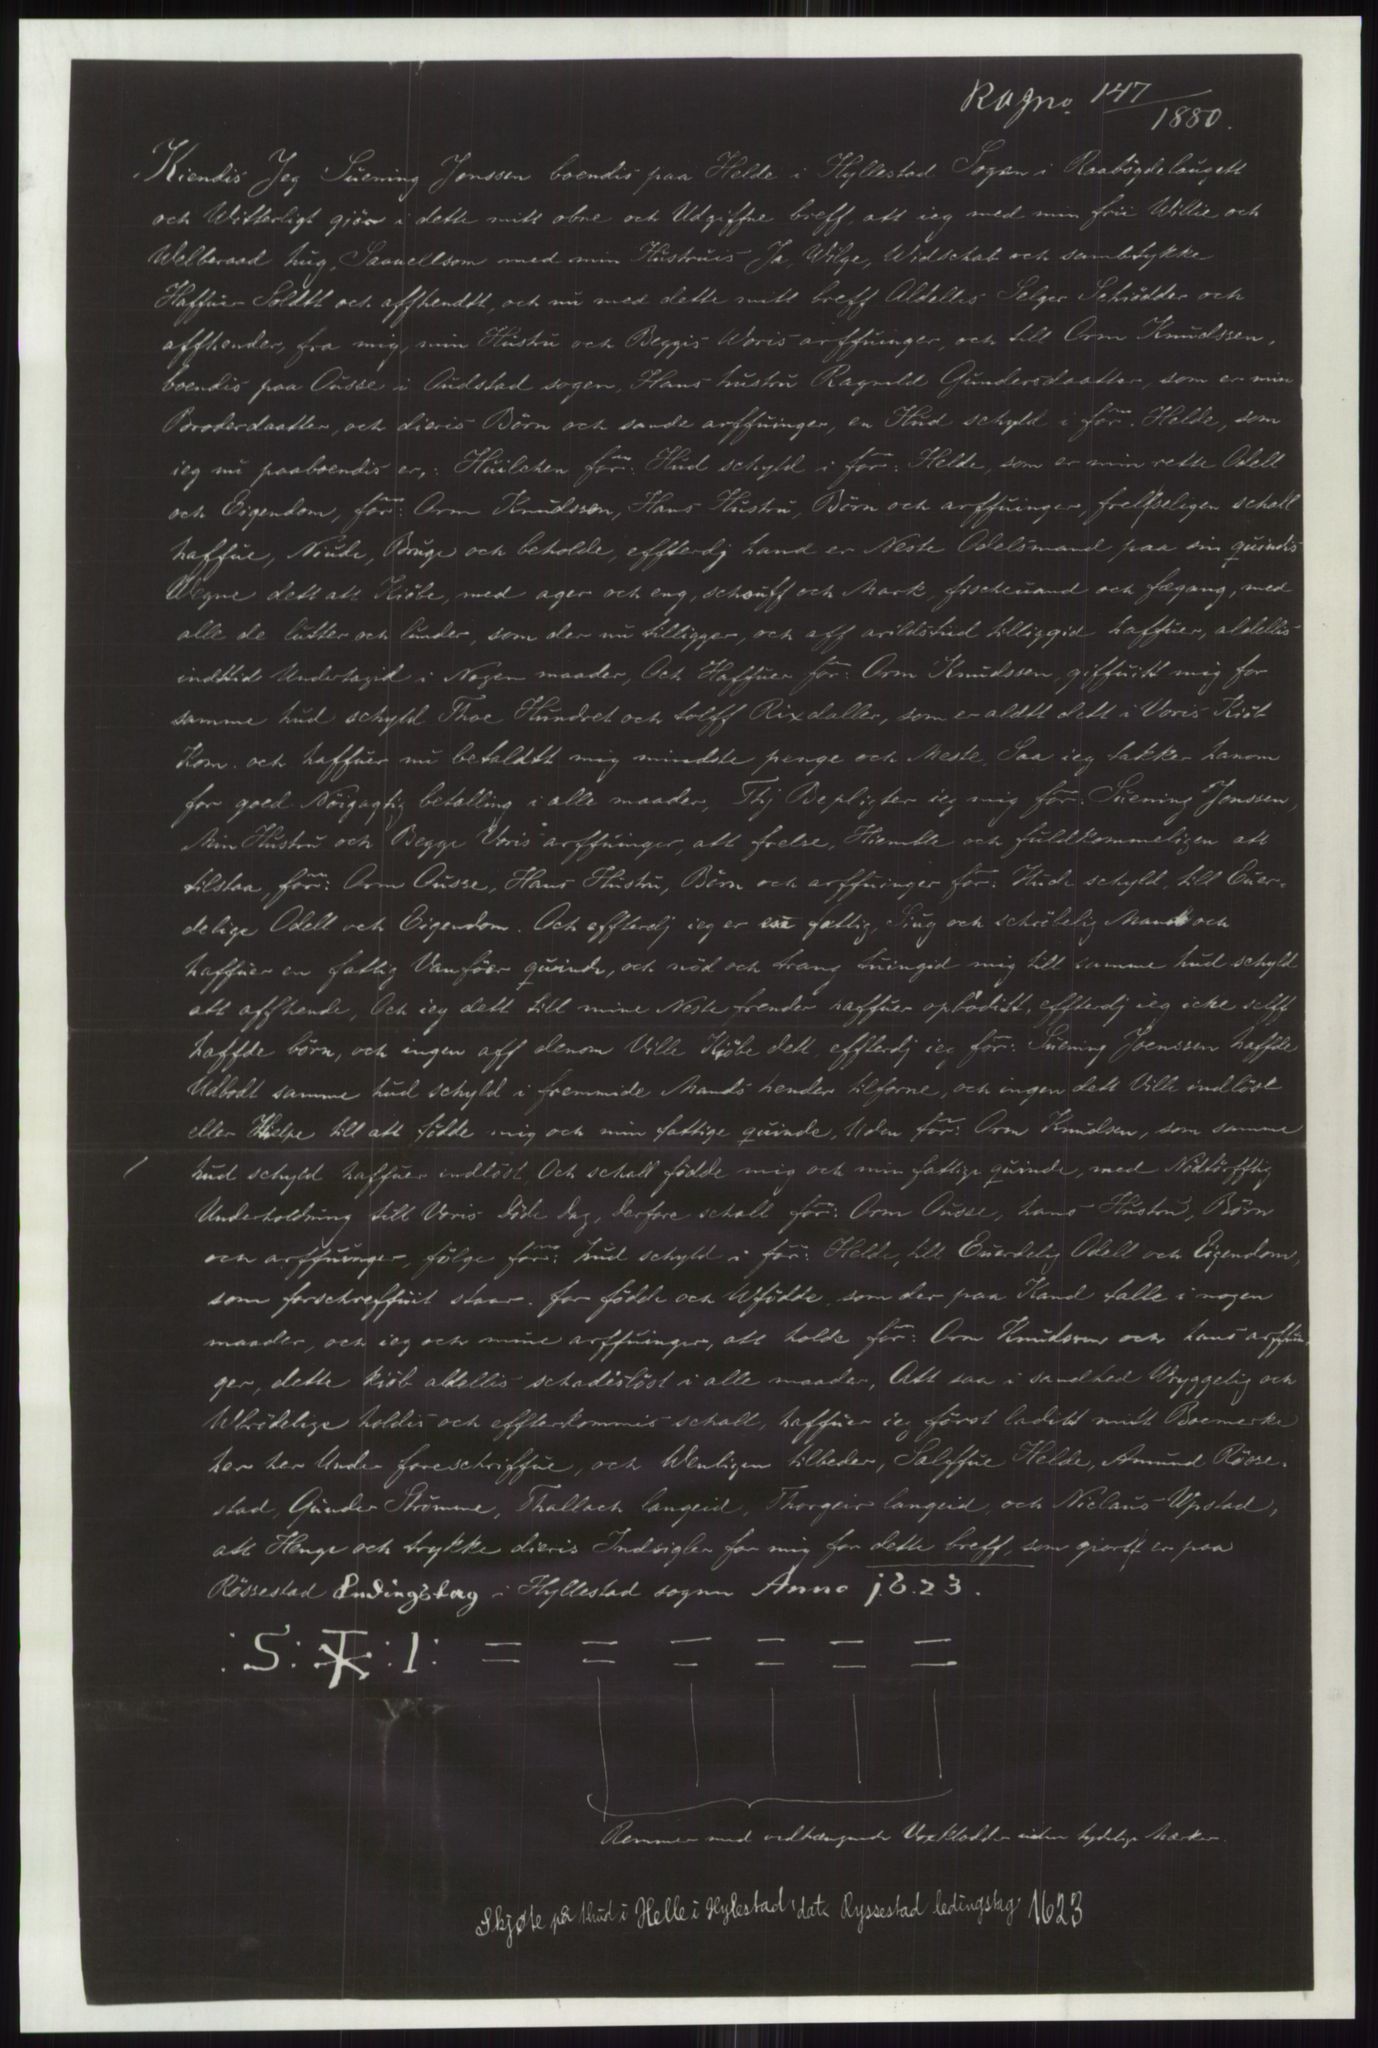 Ragno. 147/1880.
Kiendis Jeg Suening Jonssen boendis paa Helde i Hyllestad Sogen i Raabögdelaugett
och Witterligt giör i dette mitt obne och Udgiffne breff, att ieg med min frii Willie och
Welberaad hug, Sauuellsom med min Hustruis Ja, Wilge, Widschab och sambtykke
Haffuer Soldtt och affhendtt, och nu med dette mitt breff Aldellis Selger Schiödder och
affhender, fra mig, min Hustru och Beggis Woris arffuinger, och till Orm Knudssen,
boendis paa Ousse i Oudstad sogen, Hans hustru Ragnild Gundersdaatter, som er min
Broderdaatter, och dieris Börn och sande arffuinger, en Hud schyld i för: Helde, som
ieg nu paaboendis er,: Huilchen för: Hud schyld i för: Helde, som er min rette Odell
och Eigendom, för: Orm Knudssen, Hans Hustru, Börn och arffuinger, frelsseligen schall
haffue, Niude, Bruge och beholde, effterdj hand er Neste Odelsmand paa sin quindis
Wegne dett att Kiöbe, med ager och eng, schouff och Mark, fischeuand och fægang, med
alle de lutter och lunder, som der nu tilligger, och aff arildstiid tilliggid haffuer, aldellis
indtid Undertagid i Nogen maader, Och Haffuer för: Orm Knudssen, giffuitt mig for
samme hud schyld Thoe Hundret och tolff Rixdaller, som er aldtt dett i Voris Kiöb
Kom. och haffuer nu betaldtt mig mindste penge och Meste. Saa ieg takker hanom
for goed Nöigagtig betalling i alle maader, Thj Bepligter ieg mig för: Suening Jonssen,
Min Hustru och Begge Voris arffuinger, att frelse, Hiemble och fuldkommeligen att
tilstaa, för: Orm Ousse, Hans Hustru, Börn och arffuinger för: Hude schyld, till Euer-
delige Odell och Eigendom. Och effterdj ieg er en fattig, Siug och schröbelig Mand och
haffuer en fattig Vanföer quinde, och nöd och trang tuingid mig till samme hud schyld
att affhende, Och ieg dett till mine Neste frender haffuer opbödit, effterdj ieg icke selff
haffde börn, och ingen aff denom Ville Kiöbe dett, effterdj ieg för: Suening Joenssen haffde
Udbodt samme hud schyld i fremmide Mands hender tilforne, och ingen dett Ville indlöse
eller Hielpe till att födde mig och min fattige quinde, Uden för: Orm Knudsen, som samme
hud schyld haffuer indlöst, Och schall födde mig och min fattige quinde, med Nödtörfftig
Underholdning till Voris Döde dag, derfore schall för: Orm Ousse, hans Hustru, Börn
och arffuinger, fölge för: hud schyld i för: Helde, till Euerdelig Odell och Eigendom,
som forschreffuit staar. for födde och Ufödde, som der paa Kand talle i nogen
maader, och ieg och mine arffuinger, att holde för: Orm Knudssen och hans arffuin-
ger, dette kiöb aldellis schadeslöst i alle maader, Att saa i sandhed Uryggelig och
Ubrödelige holdis och effterkommis schall, haffuer ieg först laditt mitt Boemerke
her her Under foreschriffue, och Wenligen tilbeder, Salffue Helde, Amund Röisse-
stad, Gunder Strömme, Thallach langeid, Thorgeir langeid, och Niclaus Upstad,
att Henge och trykke dieris Indsigler for mig for dette breff, som giortt er paa
Rössestad Lndingsdag i Hyllestad sognn Anno j.6.23.
:S: :I: = = = = = =
Remmer med vedhængende Voxklodder uden tydelige Mærker.
Skjøte på 1 hud i Helle i Hylestad, dat. Ryssestad ledingstag 1623